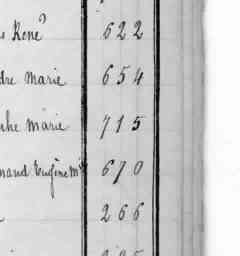 René 622
dre Marie 654
he Marie 715
mand Eugène M 670
266